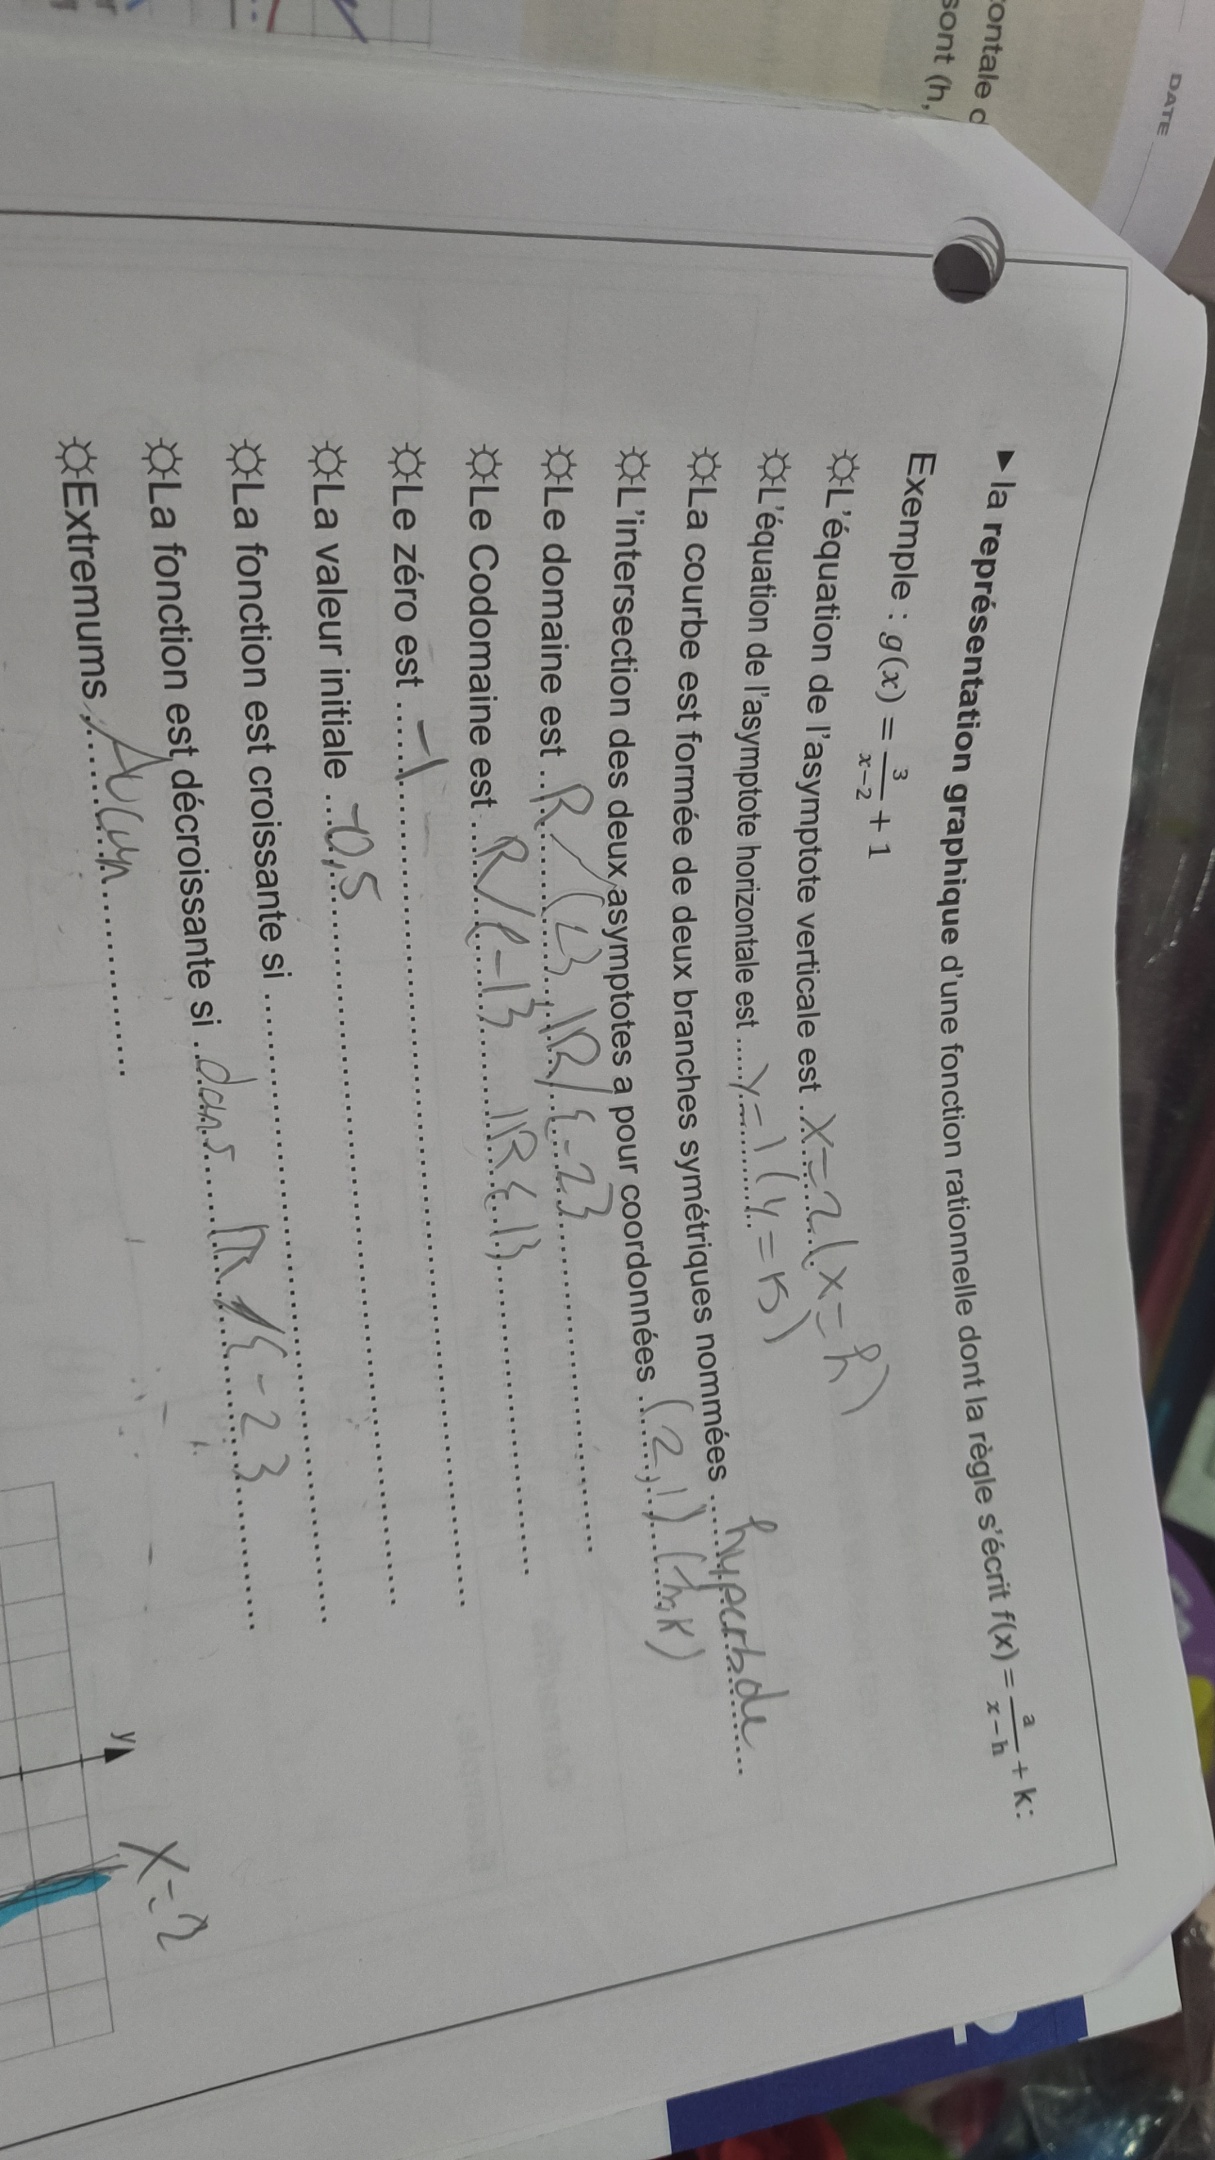 DATE
ontale d
sont (h,
► la représentation graphique d'une fonction rationnelle dont la règle s'écrit f(x) = a/(x – h) + k:
Exemple : g(x) = 3/(x−2) + 1
☼L'équation de l'asymptote verticale est x=2 (x=h)
☼L'équation de l'asymptote horizontale est y=1 (y=k)
☼La courbe est formée de deux branches symétriques nommées hyperbole
☼L'intersection des deux asymptotes a pour coordonnées (2,1) (h,k)
☼Le domaine est R/{2}, IR/{-2}
☼Le Codomaine est R/{-1} IR{1}
☼Le zéro est -1
☼La valeur initiale -0,5
☼La fonction est croissante si
☼La fonction est décroissante si dans IR/{-2}
☼Extremums Aucun
y
x=2